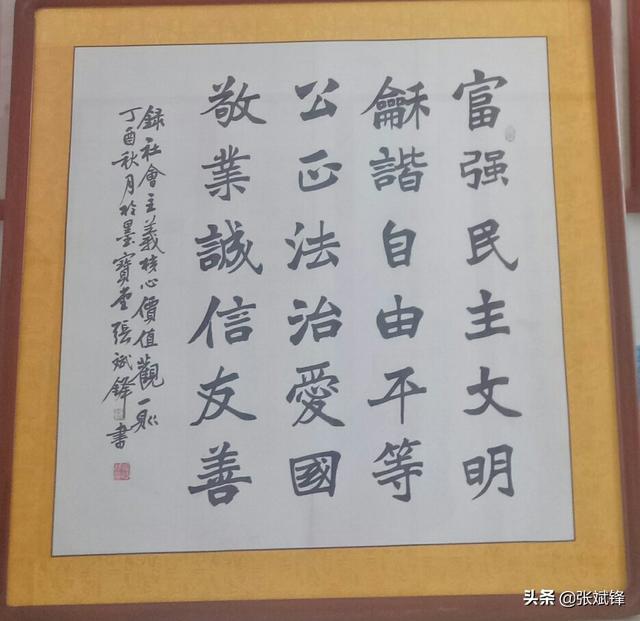 富强民主文明
龢諧自由平等
公正法治愛國
敬業誠信友善
錄社會主義核心價值觀一則
丁酉秋月於墨寶堂張斌鋒書
头条 @张斌锋